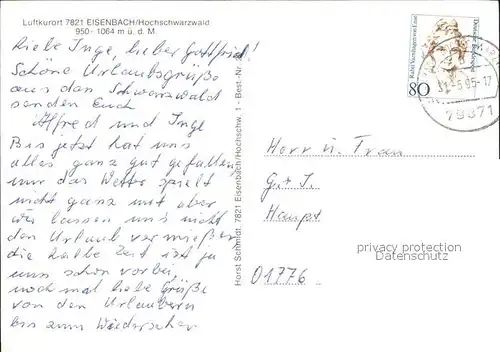 Luftkurort 7821 EISENBACH/Hochschwarzwald
950 - 1064 m ü. d. M.
Liebe Inge, lieber Gottfried!
Schöne Urlaubsgrüße
aus dem Schwarzwald
senden Euch
Alfred und Inge
Bis jetzt hat uns
alles ganz gut gefallen,
nur das Wetter spielt
nicht ganz mit aber
wir lassen uns nicht
den Urlaub vermießen
die halbe Zeit ist ja
uns schon vorbei,
noch mal liebe Grüße
von den Urlaubern
bis zum Wiedersehen
Horst Schmidt, 7821 Eisenbach/Hochschw. 1 - Best.-Nr.
Rahel Varnhagen von Ense
Deutsche Bundespost
80
31.-5.95-17
79871
Herr u. Frau
G. + I.
Hempt
privacy protection
Datenschutz
01776